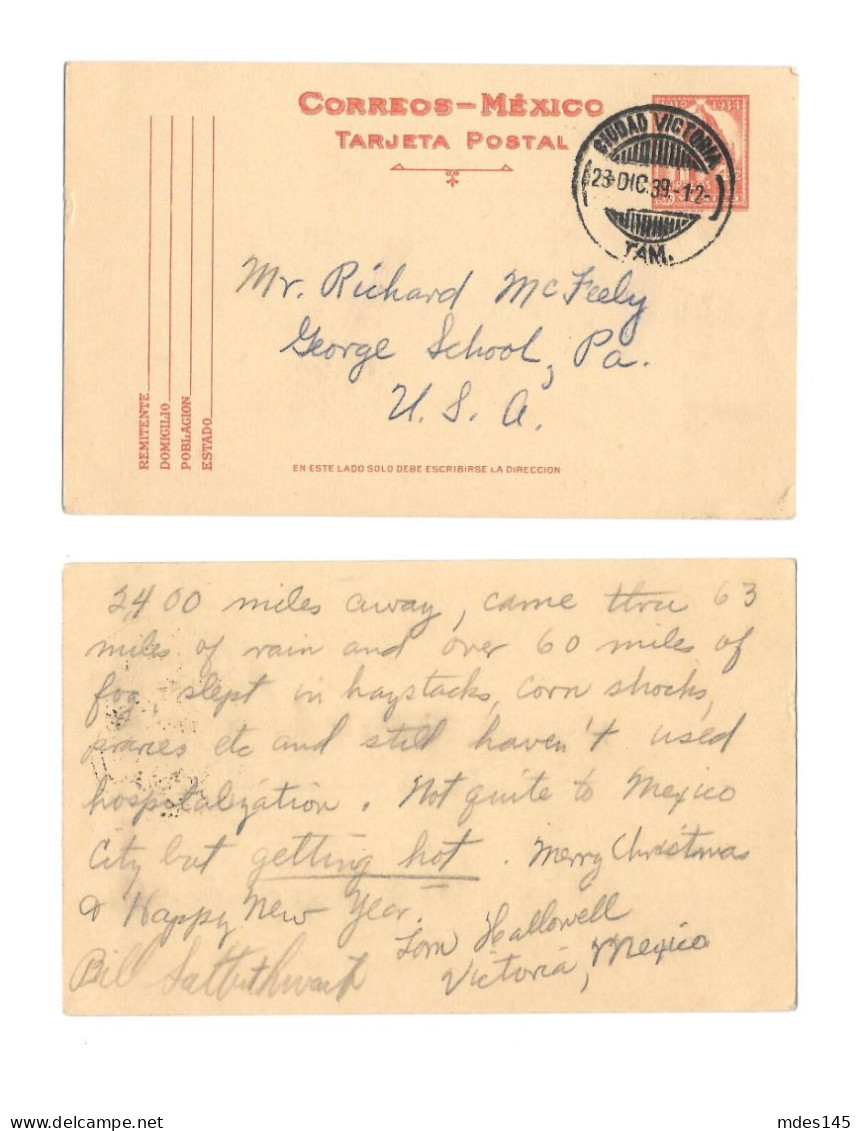 CORREOS-MÉXICO
TARJETA POSTAL
CIUDAD VICTORIA
23 DIC. 39.-12-
TAM.
1934
CORREOS
Mr. Richard McFeely
George School, Pa.
U. S. A.
REMITENTE
DOMICILIO
POBLACION
ESTADO
EN ESTE LADO SOLO DEBE ESCRIBIRSE LA DIRECCION
2400 miles away, came thru 63
miles of rain and over 60 miles of
fog, slept in haystacks, corn shocks,
praries etc and still haven't used
hospitalization. Not quite to Mexico
City but getting hot. Merry Christmas
& Happy New Year.
Tom Hallowell
Bill Satterthwait
Victoria, Mexico
mdes145